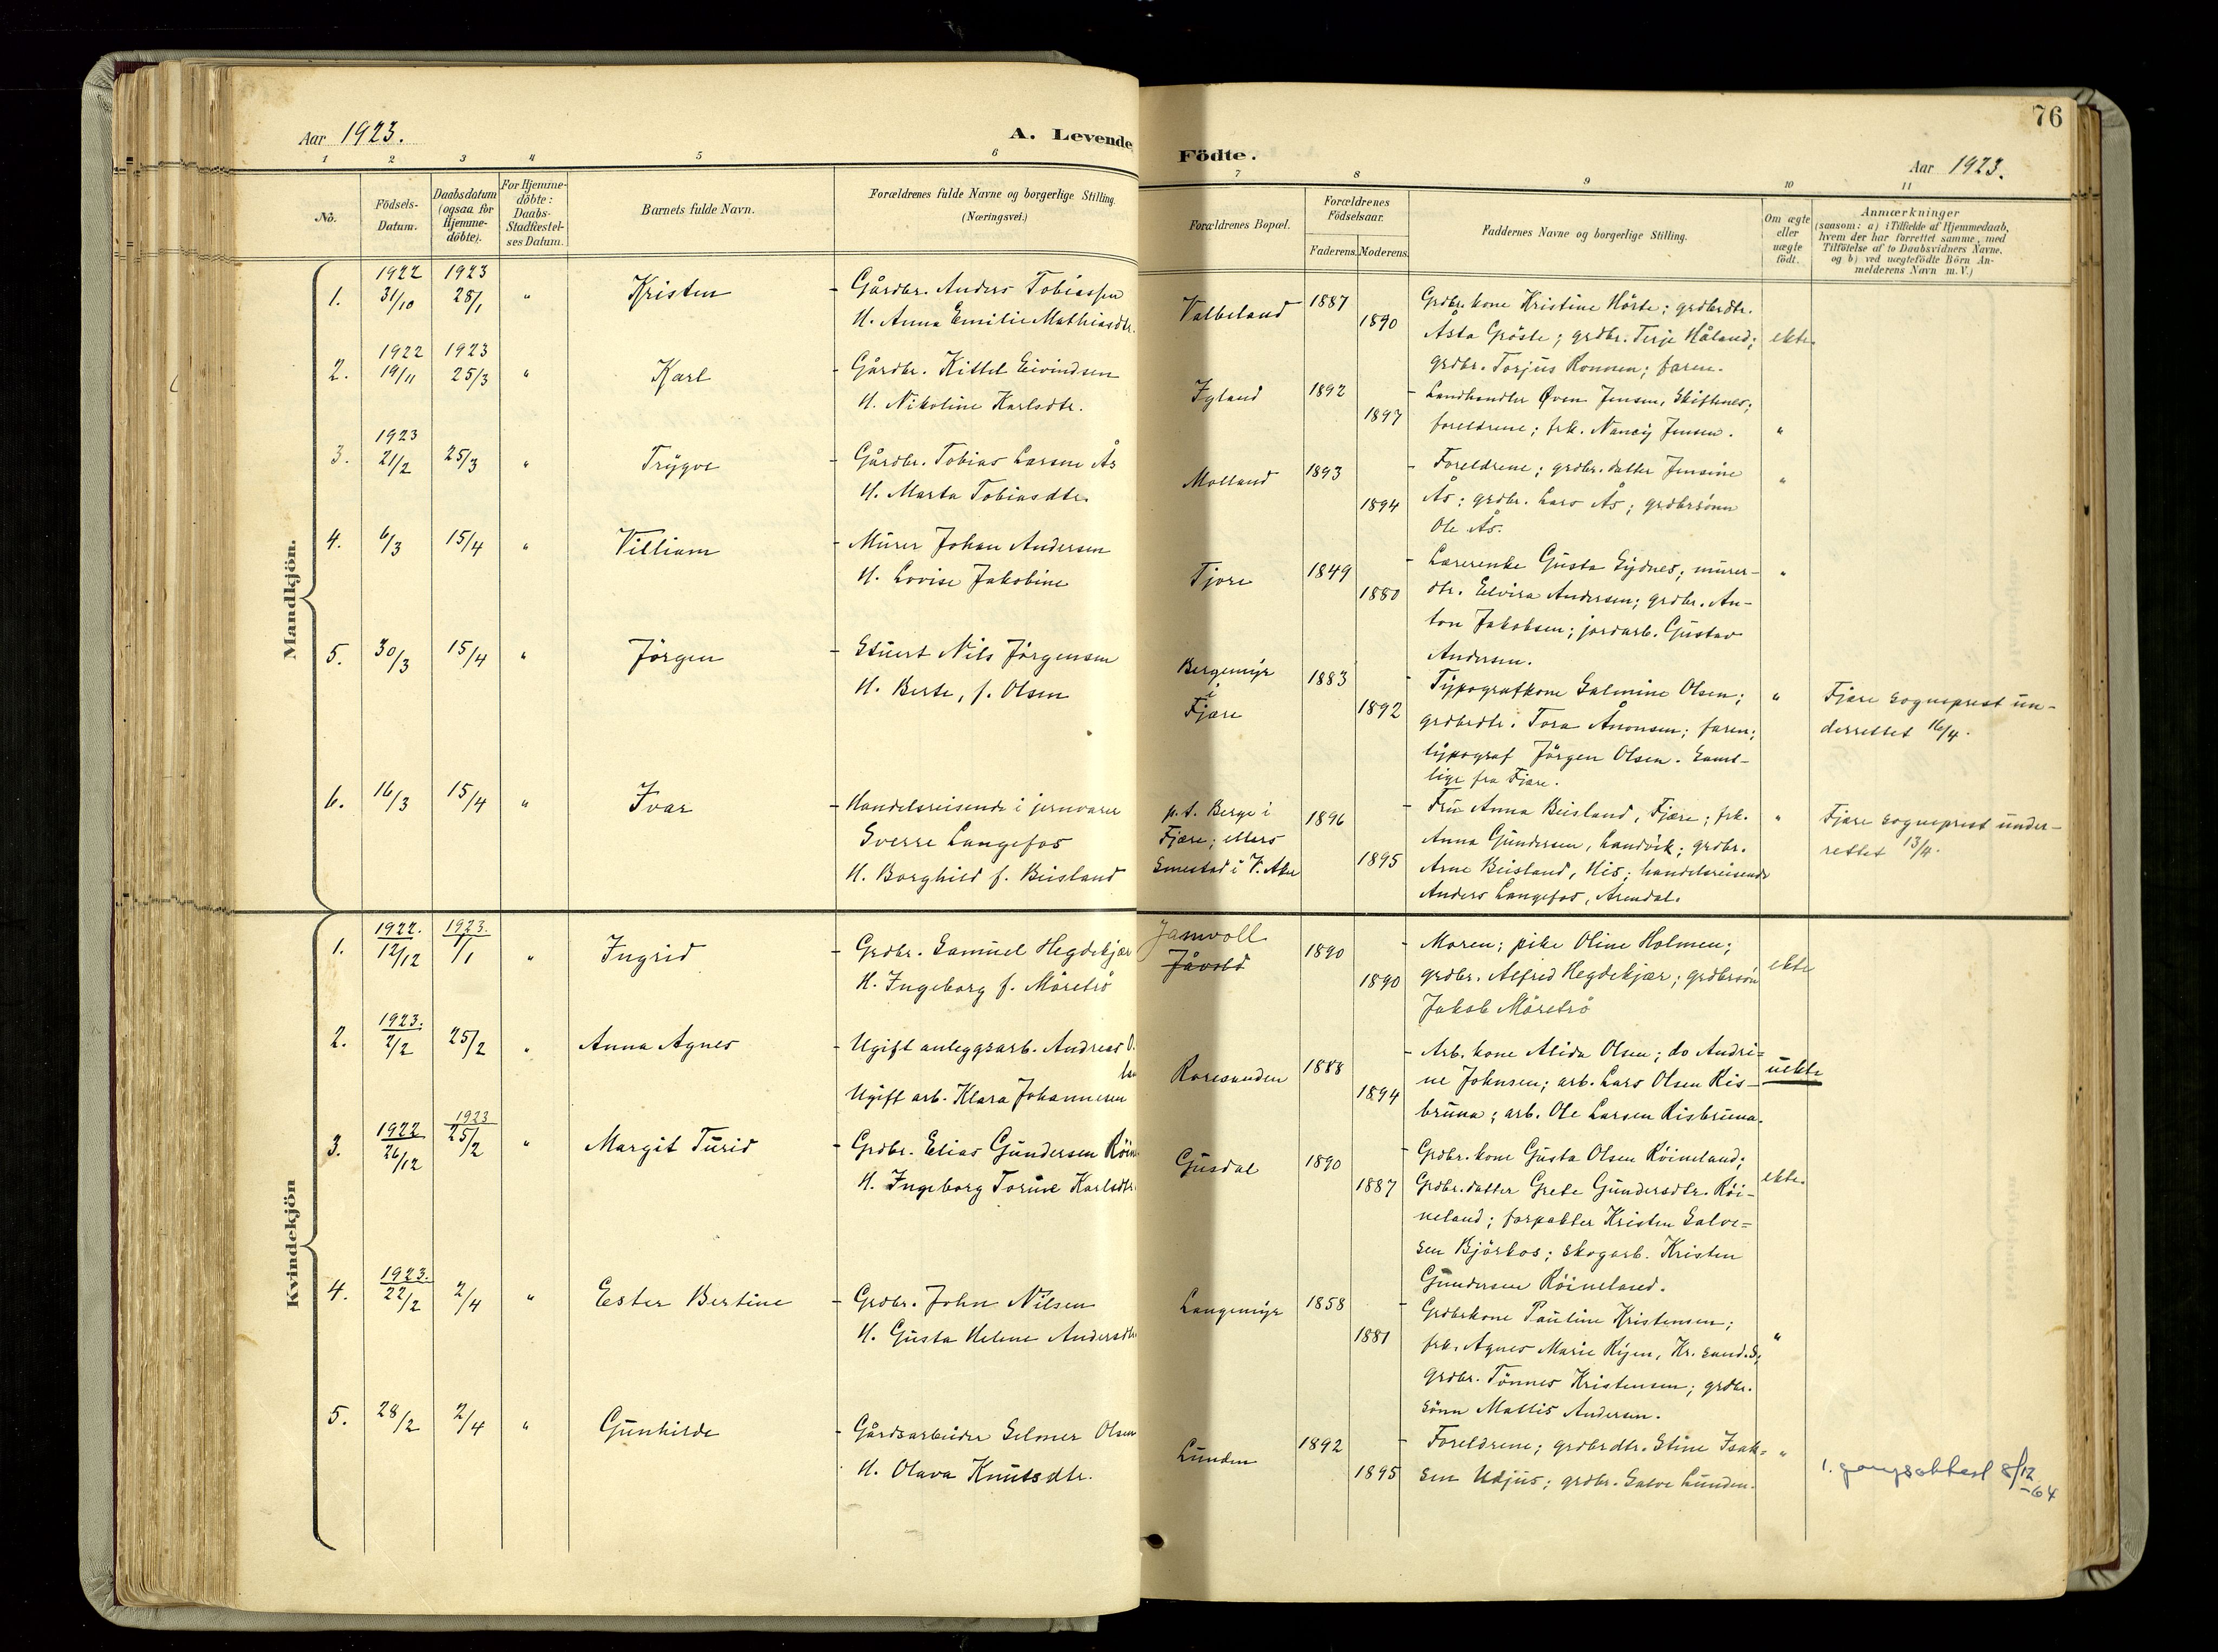 Aar 1923.
A. Levende
1 2 3 4 5 6
No.
Födsels-
Datum.
Daabsdatum
(ogsaa for
Hjemme-
döbte).
For Hjemme-
döbte:
Daabs-
Stadfæstel-
ses Datum.
Barnets fulde Navn.
Forældrenes fulde Navne og borgerlige Stilling.
(Næringsvei.)
Mandkjön.
1. 1922 31/10 1923 28/1 " Kristen - Gårdbr. Anders Tobiassen
H. Anna Emilie Mathiasdtr.
2. 1922 19/11 1923 25/3 " Karl - Gårdbr. Kittel Eivindsen
H. Nikoline Karlsdtr.
3. 1923 21/2 25/3 " Trygve - Gårdbr. Tobias Larsen Ås
H. Marta Tobiasdtr.
4. 6/3 15/4 " Villiam - Murer Johan Andersen
H. Lovise Jakobine
5. 30/3 15/4 " Jörgen - Stuert Nils Jörgensen
H. Berte, f. Olsen
6. 16/3 15/4 " Ivar - Handelsreisende i jernvarer
Sverre Langefos
H. Borghild f. Beisland
Kvindekjön
1. 1922. 12/12 1923. 1/1 " Ingrid - Grdbr. Samuel Hegdekjær
H. Ingeborg f. Möretrö
2. 1923. 2/2 25/2 " Anna Agnes - Ugift anleggsarb. Andreas O.
Ugift arb. Klara Johannesen
3. 1922 26/12 1923 25/2 " Margit Turid - Grdbr. Elias Gundersen
H. Ingeborg Torine Karlsdtr.
4. 1923. 22/2 2/4 " Ester Bertine - Grdbr. John Nilsen
H. Gusta Helene Andersdtr.
5. 28/2 2/4 " Gunhilde - Gårdsarbeider Selmer Olsen
H. Olava Knutsdtr.
76
Födte.
Aar 1923.
7 8 9 10 11
Forældrenes Bopæl.
Forældrenes
Födselsaar.
Faderens. Moderens.
Faddernes Navne og borgerlige Stilling.
Om ægte
eller
uægte
födt.
Anmærkninger
(saasom: a) i Tilfælde af Hjemmedaab,
hvem der har forrettet samme, med
Tilföielse af to Daabsvidners Navne.
og b) ved uægtefödte Börn An-
melderens Navn m. V.)
Valbeland 1887 1890 Grdbr. kone Kristine Hörte; grdbrdtr.
Åsta Gröste; grdbr. Terje Håland; ekte.
grdbr. Torjus Ronnen; faren.
Igland 1892 1897 - Landhandler Öven Jensen, Skiftenes;
foreldrene; frk. Nancy Jensen. "
Molland 1893 1894 - Foreldrene; grdbr. datter Jensine "
Ås; grdbr. Lars Ås; grdbrsönn
Ole Ås.
Tjore 1849 1880 - Lærerenke Gusta Eydnes; murer- "
dtr. Elvira Andersen; grdbr. An-
ton Jakobsen; jordarb. Gustav
Andersen.
Bergemyr
i
Fjære
1883 1892 - Typografkone Salmine Olsen; "
grdbrdtr. Tora Ånonsen; faren;
typograf Jörgen Olsen. Samt-
lige fra Fjære.
Fjære sogneprest un-
derrettet 16/4.
p.t. Berge i
Fjære; ellers
Smestad i V. Aker
1896 1895 - Fru Anna Beisland, Fjære; frk. "
Anna Gundersen, Landvik; grdbr.
Arne Beisland, His; handelsreisende
Anders Langefos, Arendal.
Fjære sogneprest under-
rettet 13/4.
Jamvoll
Jåvold
1890 1890 - Moren; pike Oline Holmen;
grdbr. Alfred Hegdekjær; grdbrsön ekte
Jakob Möretrö
Roresanden 1888 1894 - Arb. kone Alida Olsen; do Andri-
ne Johnsen; arb. Lars Olsen Ris- uekte
bruna; arb. Ole Larsen Risbruna.
Gusdal 1890 1887 - Grdbr. kone Gusta Olsen Röineland;
Grdbr. datter Grete Gundersdtr. Röi- ekte.
neland; forpakter Kristen Salve-
sen Björkos; skogarb. Kristen
Gundersen Röineland.
Langemyr 1858 1881 - Grdbrkone Pauline Kristensen;
frk. Agnes Marie Ryen, Kr. sand. S; "
grdbr. Tönnes Kristensen; grdbr.
sönn Mattis Andersen.
Lunden 1892 1895 - Foreldrene; grdbrdtr. Stine Isak- "
sen Udjus; grdbr. Salve Lunden.
1. gangsattest 8/12
-64